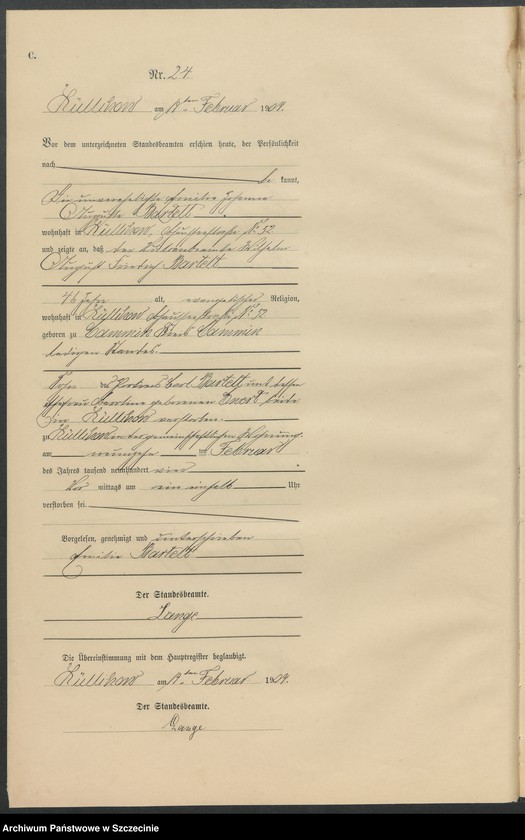 C.
Nr. 24
Züllchow am ten Februar 1904.
Vor dem unterzeichneten Standesbeamten erschien heute, der Persönlichkeit
nach
be kannt,
die unverehelichte Emilie Johanne
Auguste Bartelt
wohnhaft in Züllchow, Schulterstraße № 52
und zeigte an, daß der Wilhelm
August Friedrich Bartelt
46 Jahre alt, evangelischer Religion,
wohnhaft in Züllchow № 52
geboren zu Cammin Kreis Cammin
ledigen Standes.
Sohn des Carl Bartelt und dessen
Ehefrau geborenen beide
in Züllchow verstorben.
zu Züllchow in der gemeinschaftlichen Wohnung
am neunzehn ten Februar
des Jahres tausend neunhundert vier
Vor mittags um ein einhalb Uhr
verstorben sei.
Vorgelesen, genehmigt und unterschrieben
Emilie Bartelt
Der Standesbeamte.
Lange
Die Übereinstimmung mit dem Hauptregister beglaubigt.
Züllchow am ten Februar 1904.
Der Standesbeamte.
Lange
Archiwum Państwowe w Szczecinie